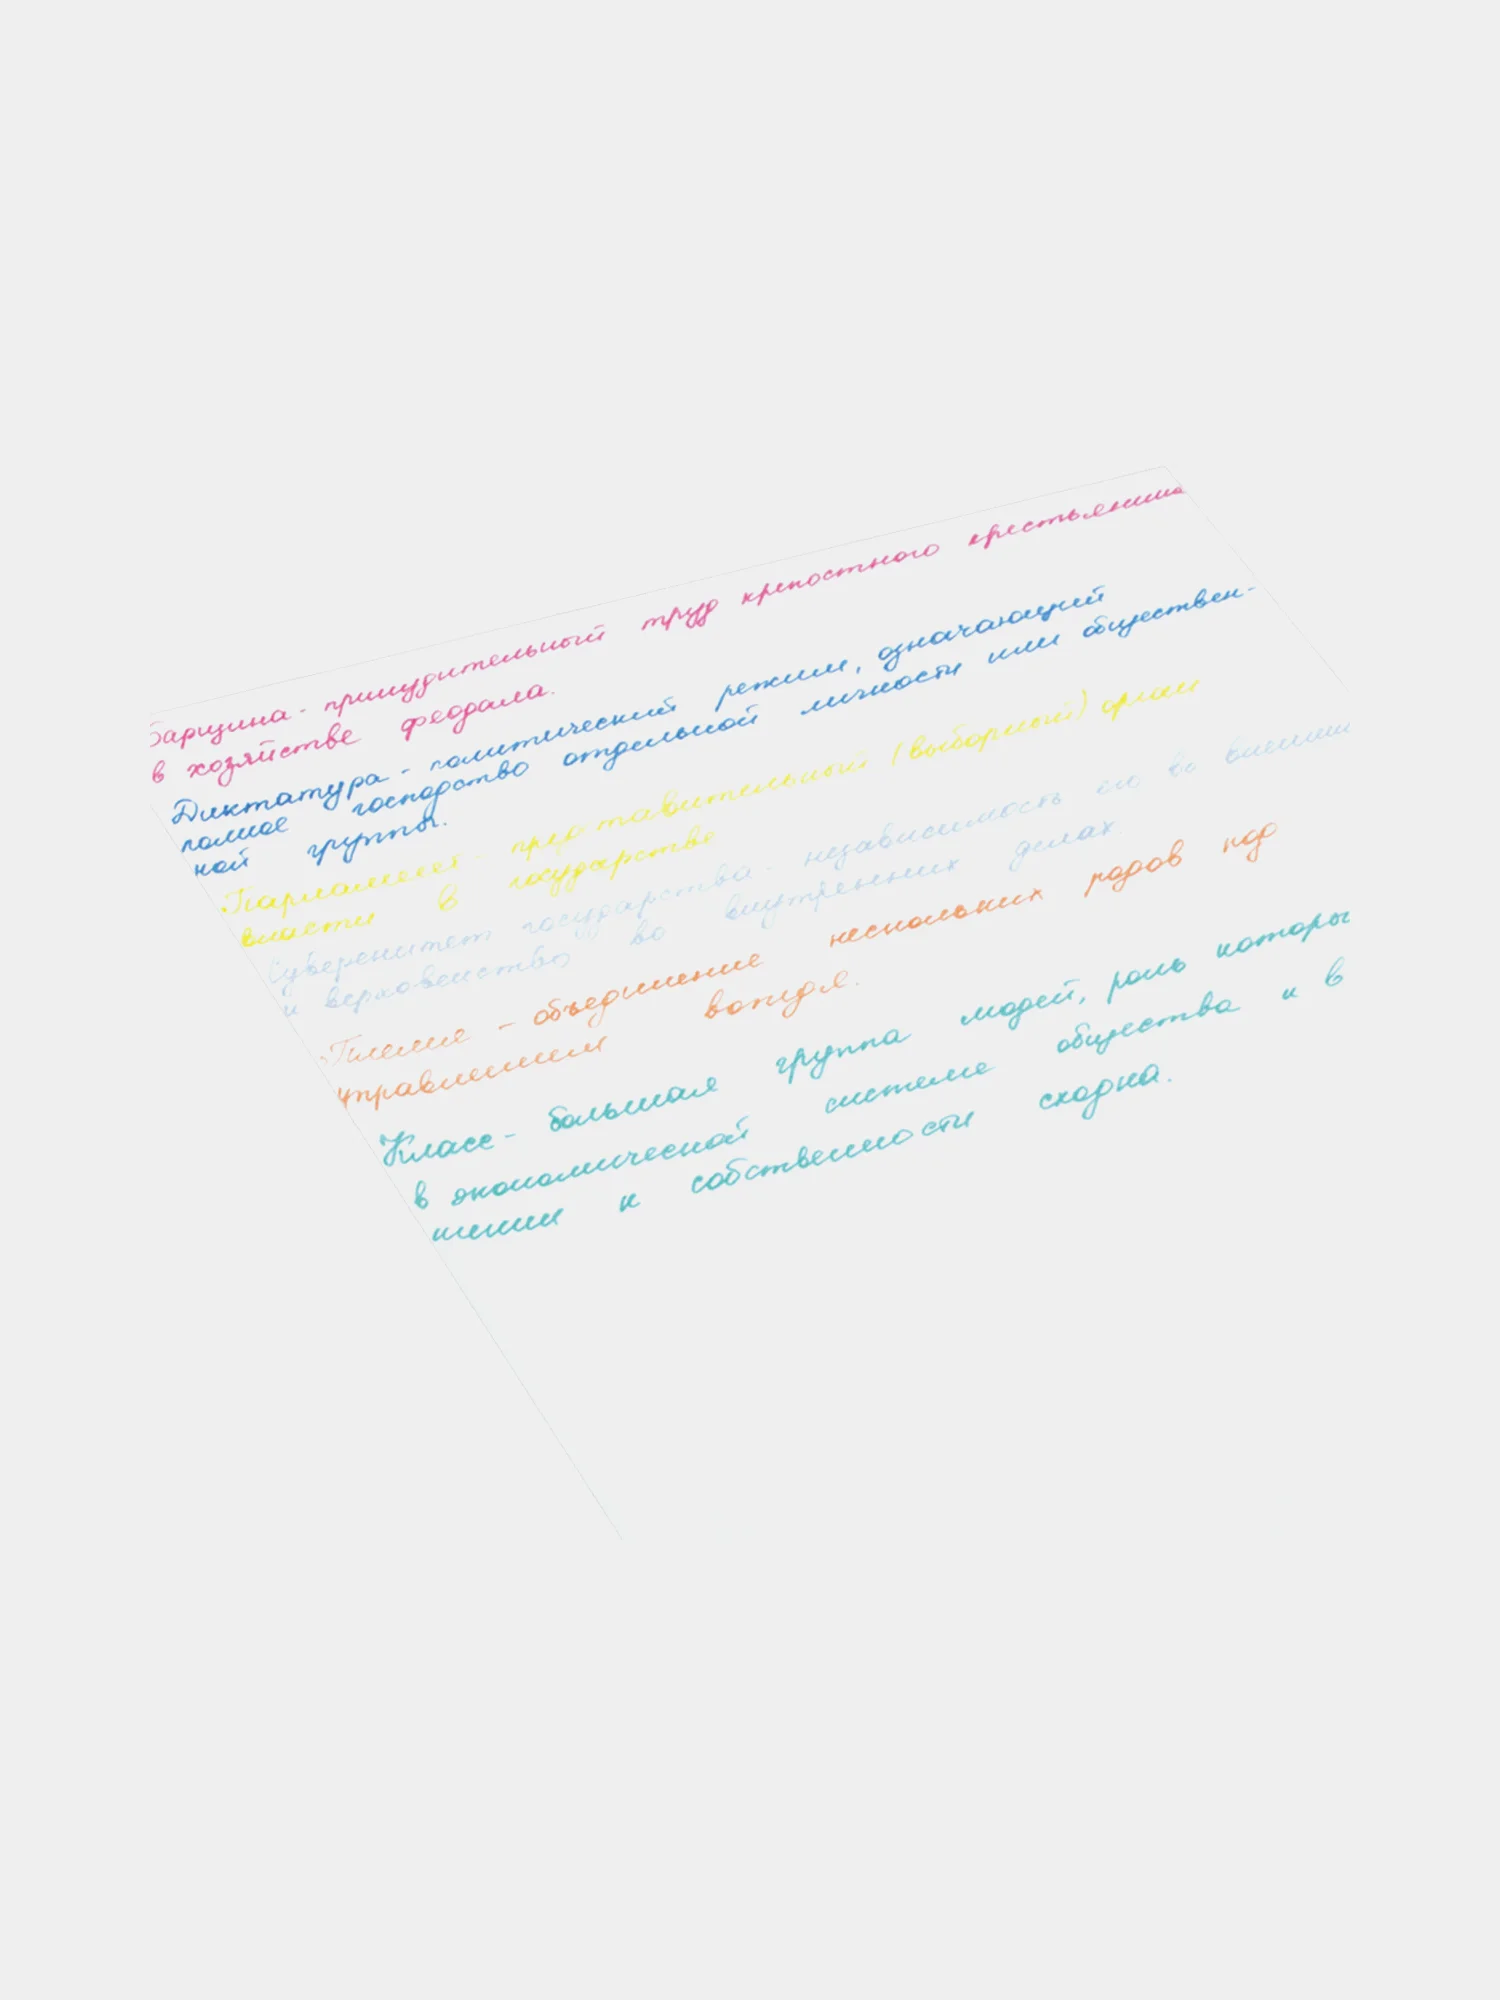 Барщина - принудительный труд крепостного крестьянина
в хозяйстве феодала.
Диктатура - политический режим, означающий
полное господство отдельной личности или обществен-
ной группы.
Парламент - представительный (выборный) орган
власти в государстве
Суверенитет государства - независимость его во внешних
и верховенство во внутренних делах.
Племя - объединение нескольких родов под
управлением вождя.
Класс - большая группа людей, роль которы
в экономической системе общества и в
шении к собственности сходна.